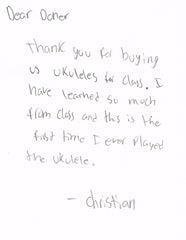 Dear Doner
Thank you for buying
us ukuleles for class. I
have learned so much
from class and this is the
first time I ever played
the ukulele.
- Christian